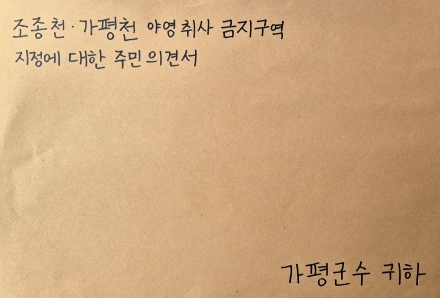 조종천·가평천 야영취사 금지구역
지정에 대한 주민의견서
가평군수 귀하